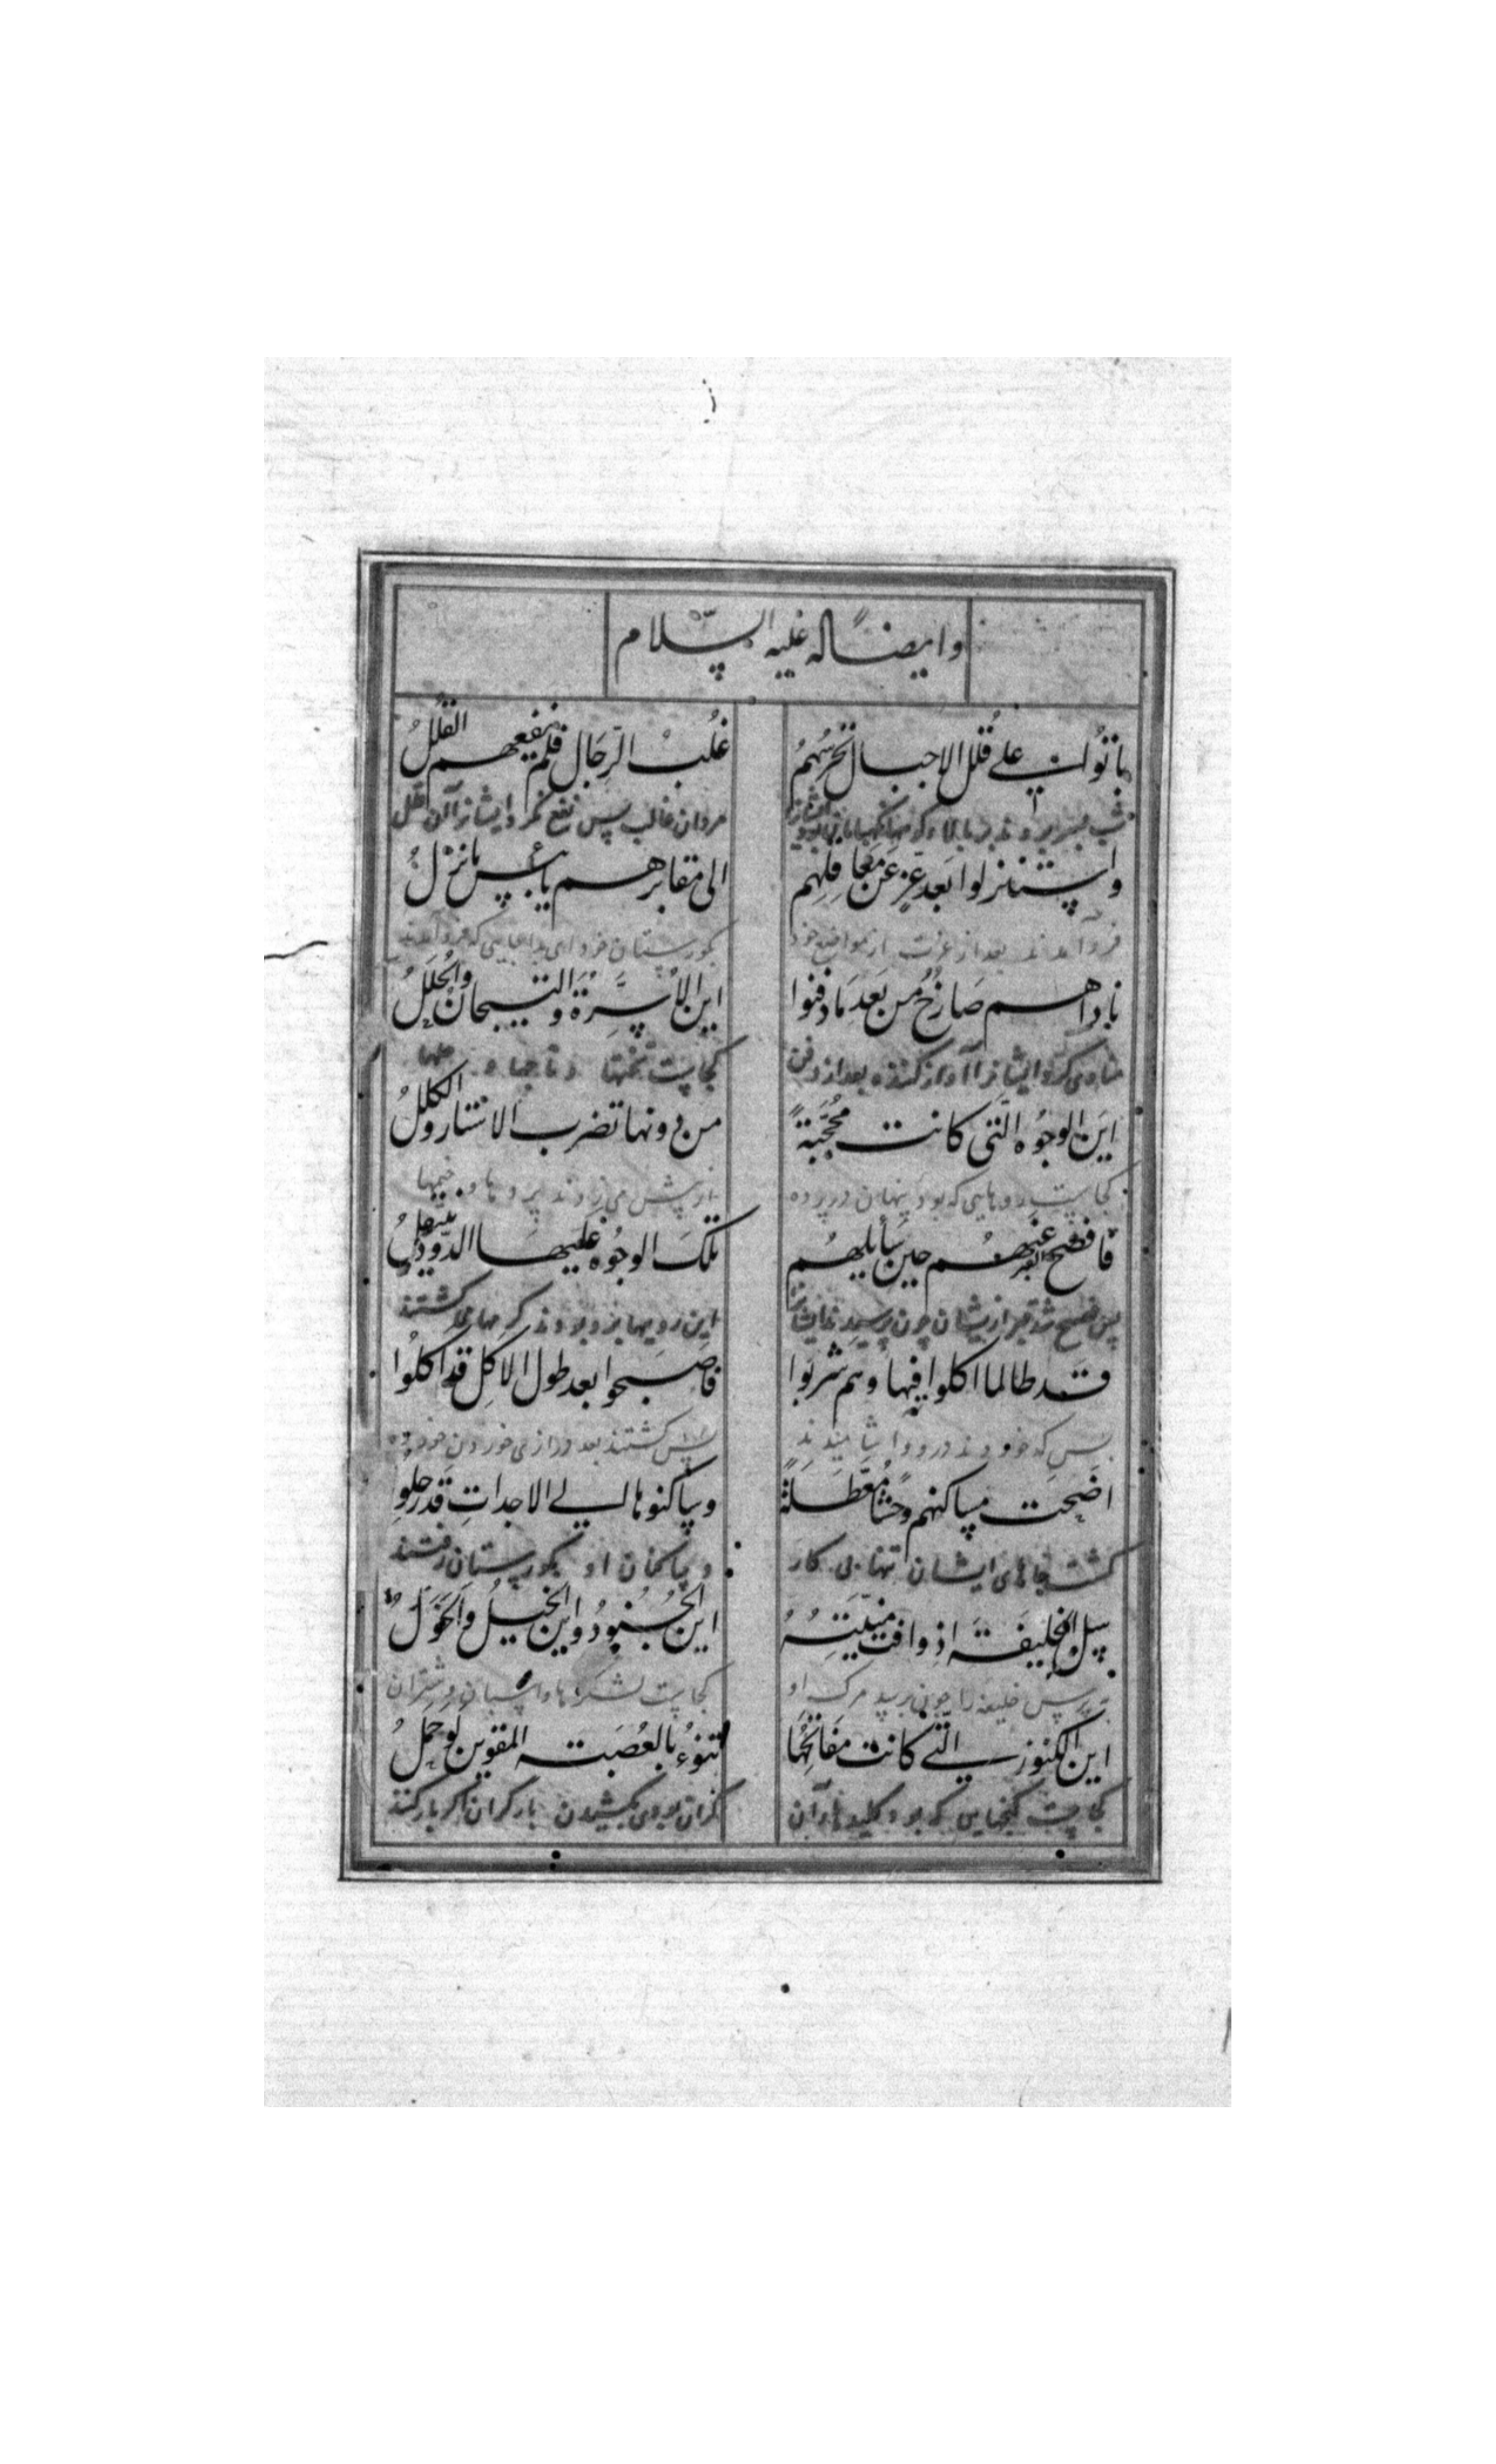 وایضا له علیه السلام
باتوا علی قلل الاجبال تحرسهم غلب الرجال فلم ینفعهم القلل
مردان غالب پس نفع نکرد ایشانرا آن قلل
واستنزلوا بعد عز عن معاقلهم الی مقابرهم یا بئس ما نزلوا
فرود آمدند بعد از عزت از مواضع خود بگورستان خود ای بد جایی که فرود آمدند
ناداهم صارخ من بعد ما دفنوا این الاسرة والتیجان والحلل
منادی کرد ایشانرا آواز کننده بعد از دفن کجاست تختها و تاجها و حلها
این الوجوه التی کانت محجبة من دونها تضرب الاستار والکلل
کجاست رویهایی که بود پنهان در پرده از پیش می زدند پردها و خیمها
فافصح القبر عنهم حین سایلهم تلک الوجوه علیها الدود ینتقل
این رویها بروبروند کرمها نقل گشتند
قد طالما اکلوا فیها وهم شربوا فاصبحوا بعد طول الاکل قد اکلوا
بس که خوردند درو و اشامیدند پس گشتند بعد درازی خوردن خورده
اضحت مساکنهم وحشا معطلة وساکنوها الی الاجداث قد رحلوا
گشت جاهای ایشان تنها بی کار و ساکنان او بگورستان رفتند
سل الخلیفة اذ وافت منیته این الجنود واین الخیل والخول
پرس خلیفه را چون برسد مرگ او کجاست لشکرها و اسبان و شتران
این الکنوز التی کانت مفاتحها تنوء بالعصبة المقوین لو حملوا
کجاست گنجهایی که بود کلیدهاء آن گران بودی بکشیدن بار گران اگر بار کنند